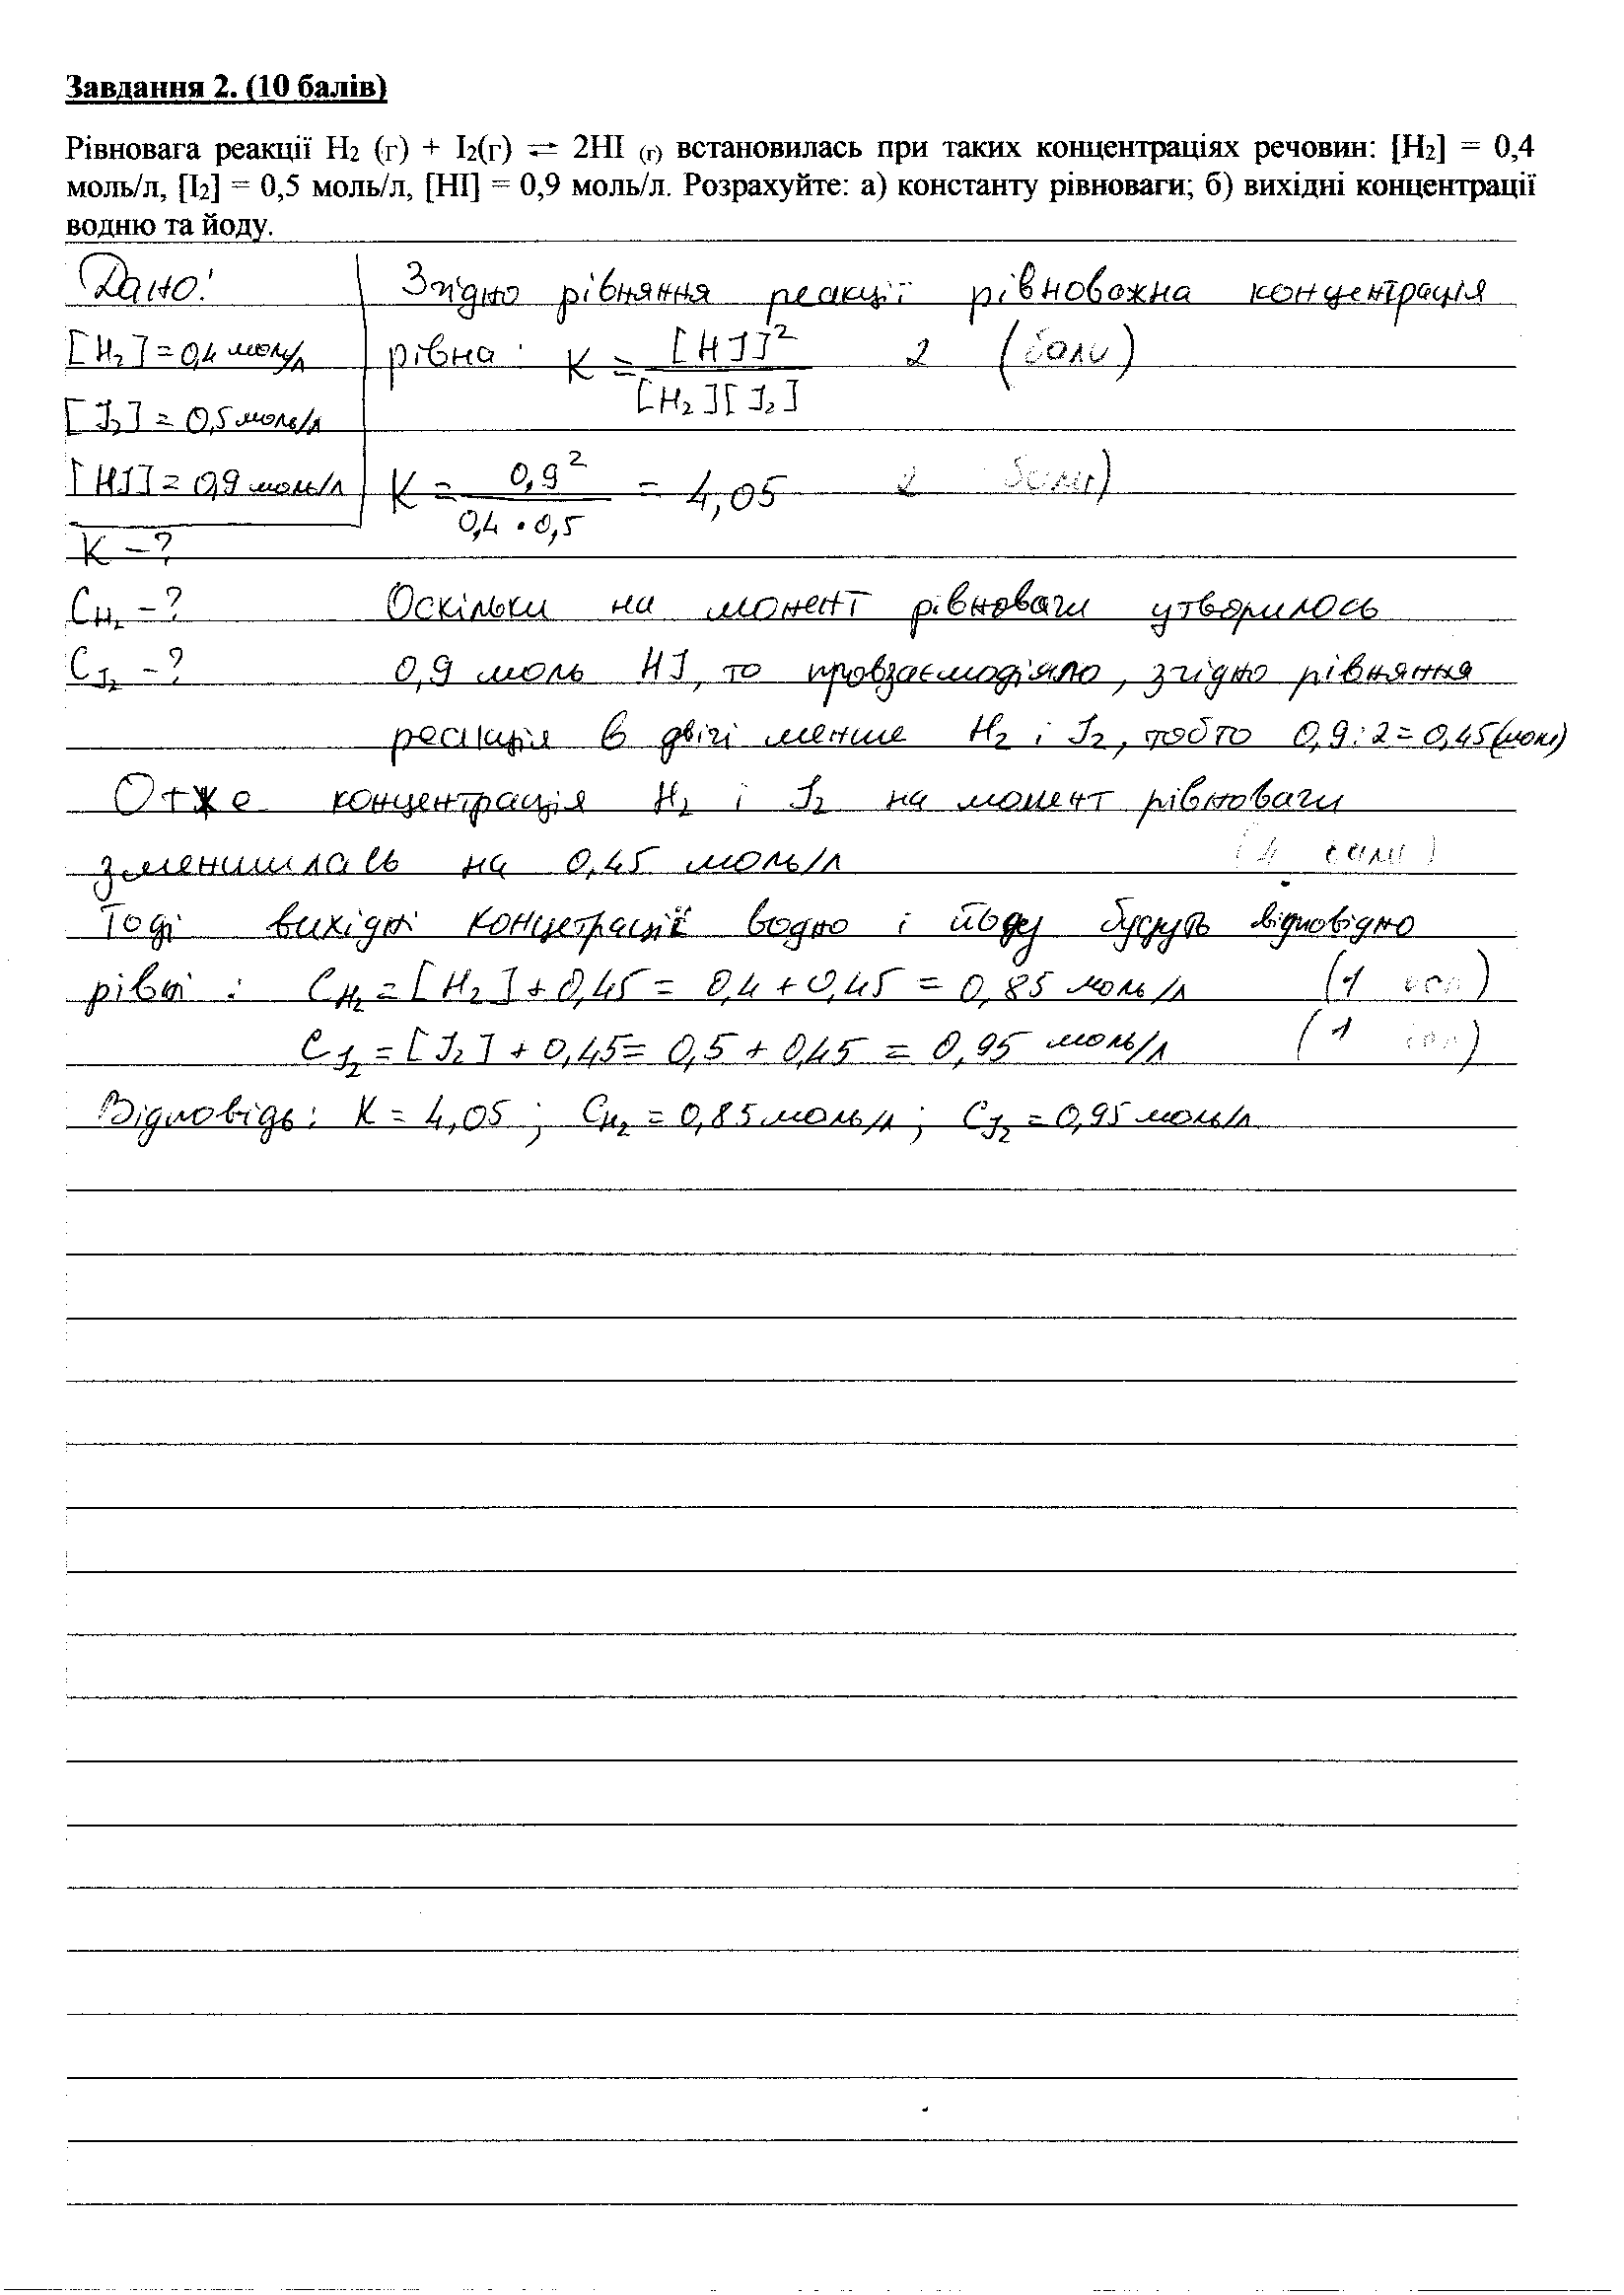 Завдання 2. (10 балів)
Рівновага реакції H₂ (г) + I₂(г) ⇌ 2HI (г) встановилась при таких концентраціях речовин: [H₂] = 0,4
моль/л, [I₂] = 0,5 моль/л, [HI] = 0,9 моль/л. Розрахуйте: а) константу рівноваги; б) вихідні концентрації
водню та йоду.
Дано:
[H₂] = 0,4 моль/л
[J₂] = 0,5 моль/л
[HJ] = 0,9 моль/л
K – ?
C_H₂ – ?
C_J₂ – ?
Згідно рівняння реакції рівноважна концентрація
рівна: K = [HJ]² / [H₂][J₂] 2 (бали)
K = 0,9² / 0,4 · 0,5 = 4,05 2 бали)
Оскільки на момент рівноваги утворилось
0,9 моль HJ, то провзаємодіяло, згідно рівняння
реакція в двічі менше H₂ і J₂, тобто 0,9 : 2 = 0,45 (моль)
Отже концентрація H₂ і J₂ на момент рівноваги
зменшилась на 0,45 моль/л (4 бали)
Тоді вихідні концетрації водню і йоду будуть відповідно
рівні : C_H₂ = [H₂] + 0,45 = 0,4 + 0,45 = 0,85 моль/л (1 бал)
C_J₂ = [J₂] + 0,45 = 0,5 + 0,45 = 0,95 моль/л (1 бал)
Відповідь: K = 4,05 ; C_H₂ = 0,85 моль/л ; C_J₂ = 0,95 моль/л